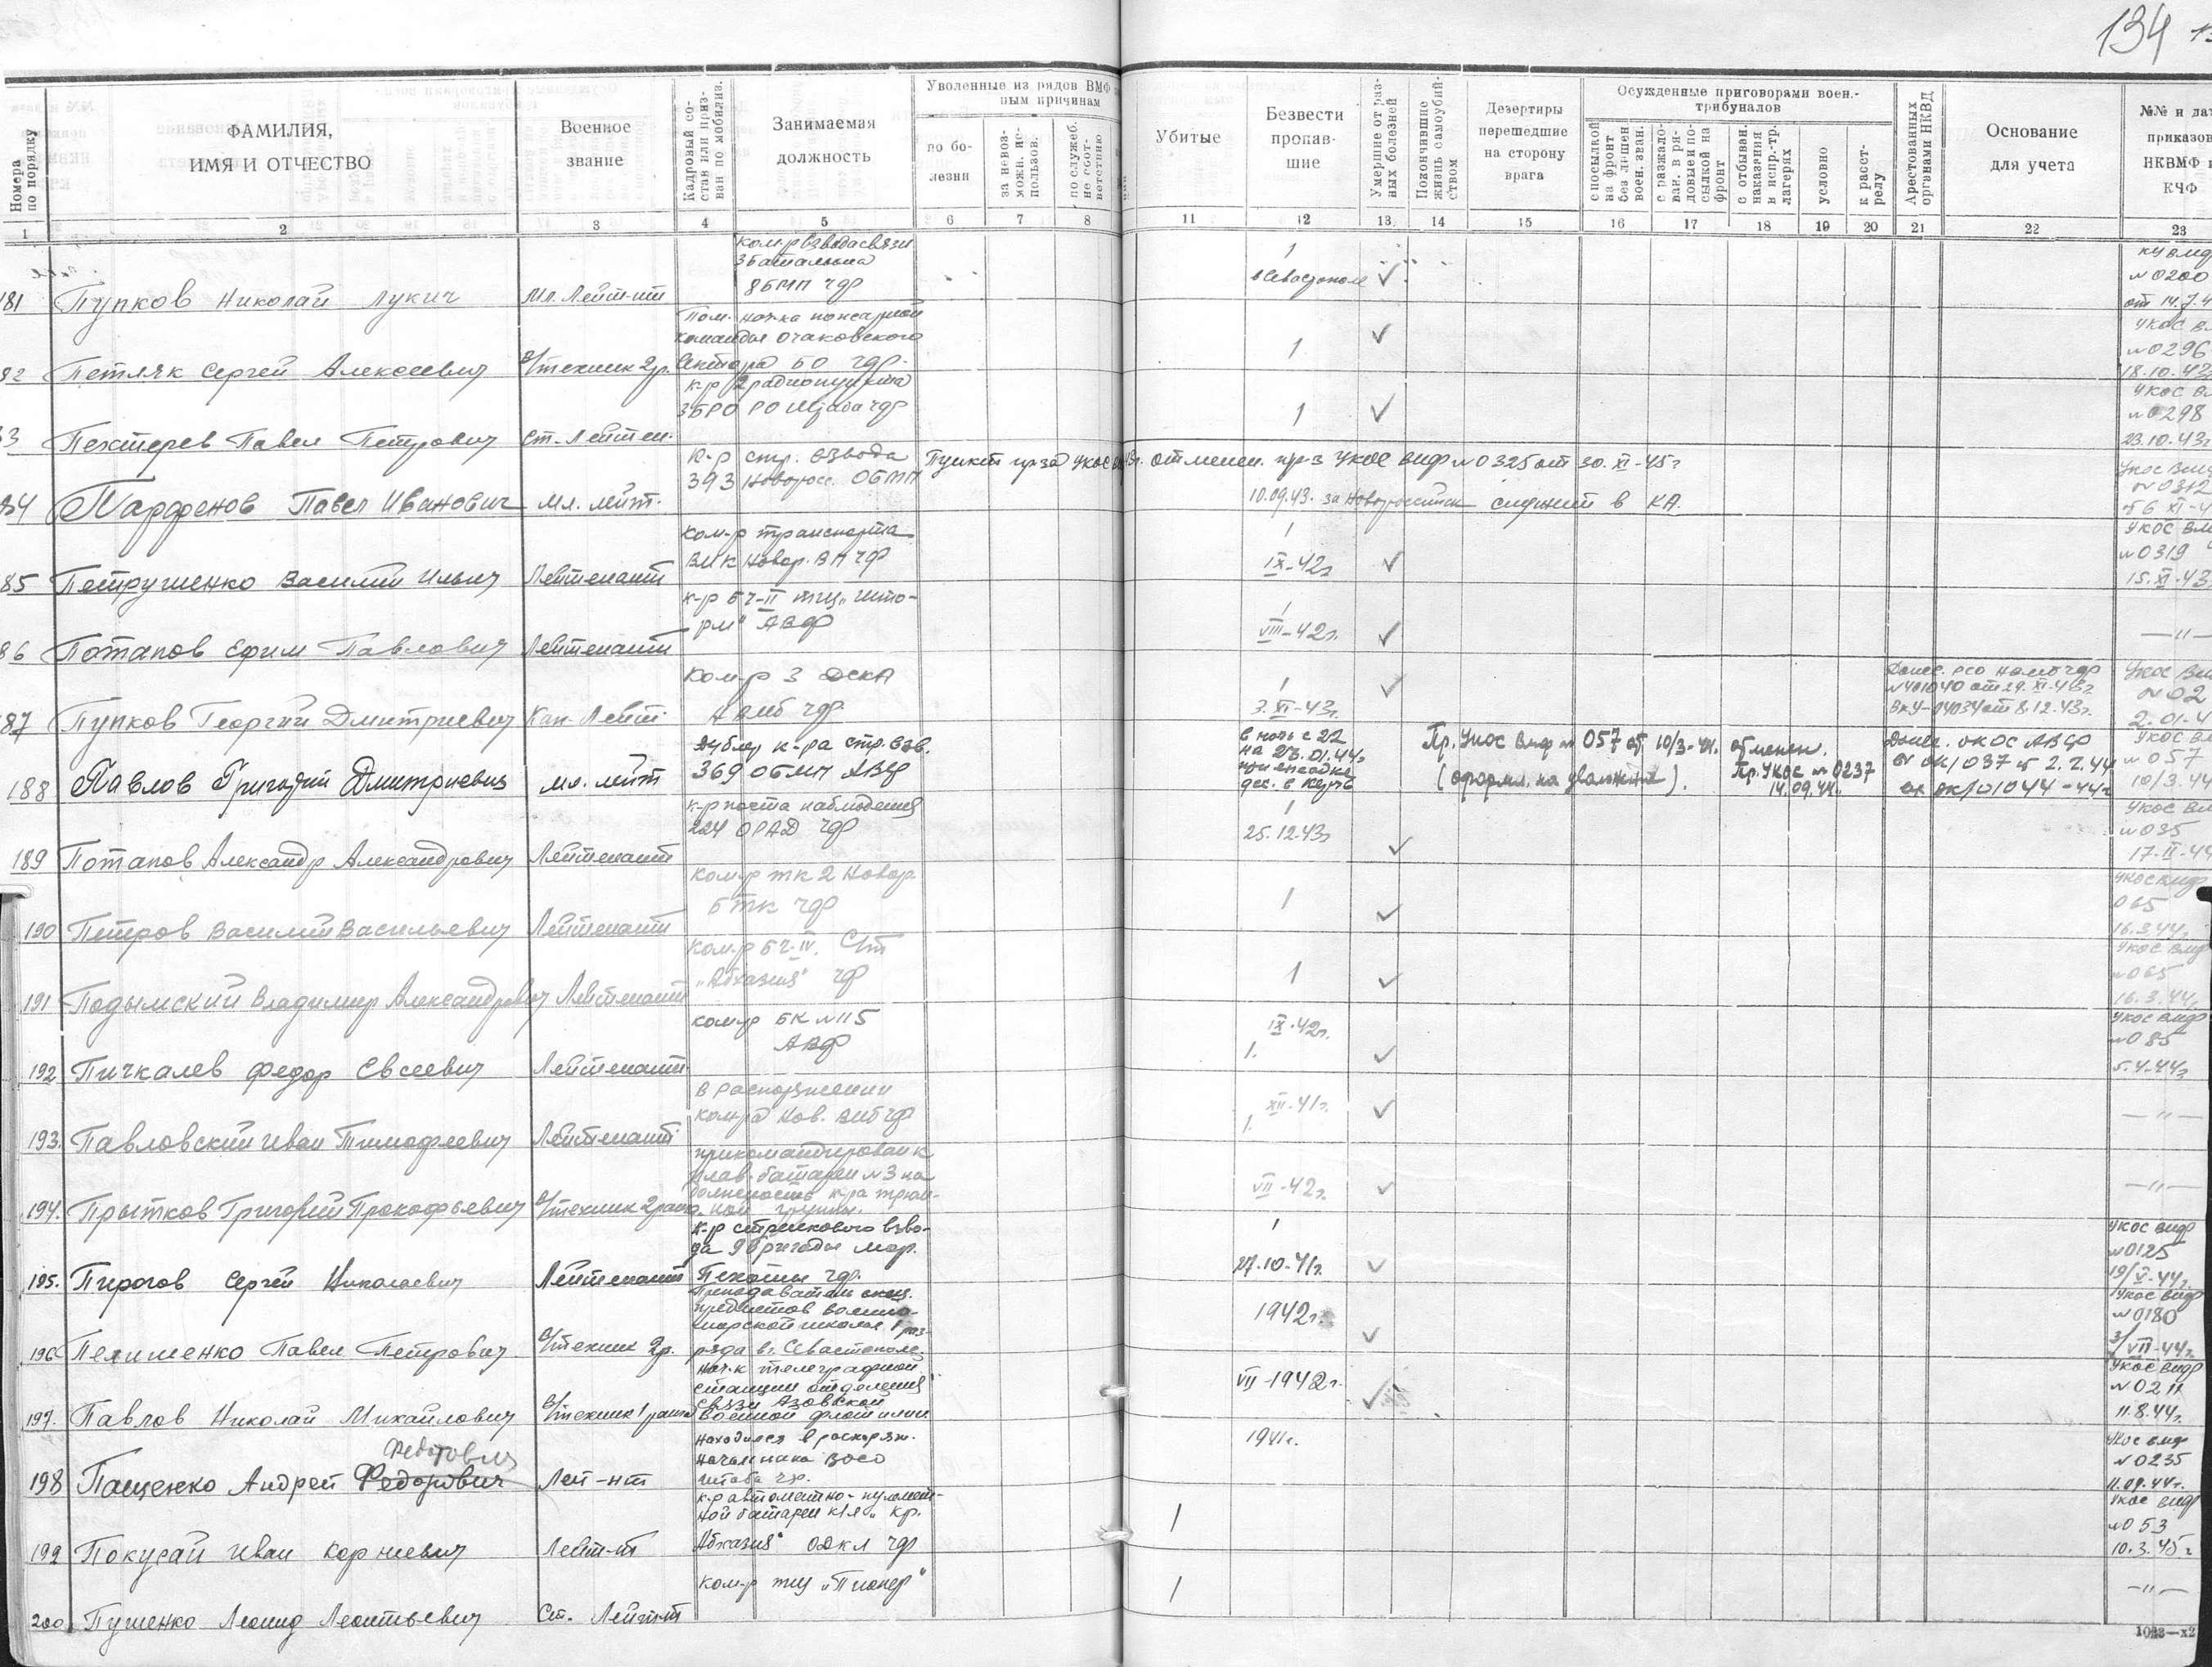 134
Номера по порядку
ФАМИЛИЯ,
ИМЯ И ОТЧЕСТВО
Военное
звание
Кадровый со-
став или приз-
ван по мобилиз.
Занимаемая
должность
Уволенные из рядов ВМФ
ным причинам
по бо-
лезни
за невоз-
можн. ис-
пользов.
по служеб.
не соот-
ветствию
Убитые
Безвести
пропав-
шие
Умершие от раз-
ных болезней
Покончившие
жизнь самоубий-
ством
Дезертиры
перешедшие
на сторону
врага
Осужденные приговорами воен.-
трибуналов
с посылкой
на фронт
без лишен
воен. зван.
с разжало-
ван. в ря-
довые и по-
сылкой на
фронт
с отбыван.
наказания
в испр.-тр.
лагерях
условно
к расст-
релу
Арестованных
органами НКВД
Основание
для учета
№№ и дат
приказов
НКВМФ и
КЧФ
1 2 3 4 5 6 7 8 11 12 13 14 15 16 17 18 19 20 21 22 23
ком-р взвода связи
3 батальона
8 БМП ЧФ
181 Пупков Николай Лукич Мл. Лейт-нт
1
в Севастополе
№ 0200
от 14.7.4
Пом. нач-ка пожарной
команды Очаковского
сектора БО ЧФ
82 Петляк Сергей Алексеевич в/техник 2р.
1
№ 0296
18.10.43
к-р 2 радиопункта
3 БРО РО Штаба ЧФ
3 Пехтерев Павел Петрович Ст. Лейтен.
1
№ 0298
23.10.43г
к-р стр. взвода
393 Новорос. ОБМП
Пункт пр-за УКОС отменен. пр-з УКОС ВМФ № 0325 от 30.XI-45г
84 Парфенов Павел Иванович Мл. лейт.
10.09.43. за Новороссийск служит в КА.
УКОС ВМФ
№ 0312
6 XI-4
ком-р транспорта
ВМК Новор. ВП ЧФ
85 Петрушенко Василий Ильич Лейтенант
1
IX-42г
УКОС ВМ
№ 0319
15.XI.43
к-р БЧ-II тщ „Што-
рм" АВФ
86 Потапов Ефим Павлович Лейтенант
1
VIII-42г.
—"—
Ком-р 3 ДСКА
АВМБ ЧФ
87 Пупков Георгий Дмитриевич Кап-Лейт.
1
3.XI-43г.
УКОС ВМ
№ 02
2.01.4
Дублер к-ра стр. взв.
369 ОБМП АВФ
188 Павлов Григорий Дмитриевич мл. лейт
в ночь с 22
на 23.01.44г
при высадке
дес. в Керчь
Пр. УКОС ВМФ № 057 от 10/3-44. отменен.
(оформл. на уволжение). Пр. УКОС № 0237
14.09.44.
Донес. ОКОС АВФ
№ 057
10/3.44
к-р поста наблюдения
224 ОРАД ЧФ
189 Потапов Александр Александрович Лейтенант
1
25.12.43г
УКОС ВМ
№ 035
17-II-44
ком-р ТК 2 Новор.
БТК ЧФ
190 Петров Василий Васильевич Лейтенант
1
УКОС ВМФ
065
16.3.44г
ком-р БЧ-IV. С/т
„Абхазия" ЧФ
191 Подымский Владимир Александрович Лейтенант
1
УКОС ВМФ
№ 065
16.3.44г
ком-р БК № 115
АВФ
192 Пичкалев Федор Евсеевич Лейтенант
IX-42г.
1.
УКОС ВМФ
№ 085
5.4.44г
в распоряжении
ком-ра Нов. ВМБ ЧФ
193. Павловский Иван Тимофеевич Лейтенант
XII-41г.
1.
—"—
прикомандирован к
плав-батареи № 3 на
должность к-ра трюм-
ной группы.
194. Прытков Григорий Прокофьевич в/техник 2 ранг
VII-42г.
—"—
к-р стрелкового взво-
да 9 бригады мор.
Пехоты ЧФ.
195. Пирогов Сергей Николаевич Лейтенант
1
27.10-41г.
УКОС ВМФ
№ 0125
19/V-44г.
Преподаватель спец.
предметов
школы 1 раз-
ряда в г. Севастополе
196 Пелишенко Павел Петрович в/техник 2р.
1942г.
УКОС ВМФ
№ 0180
3/VII-44г.
Нач-к телеграфной
станции отделения
связи Азовской
военной флотилии
197. Павлов Николай Михайлович в/техник 1 ранга
VII-1942г.
УКОС ВМФ
№ 0211
11.8.44г.
Находился в распоряж.
начальника ВОСО
штаба ЧФ.
Федотович
198 Пащенко Андрей Федорович Лей-нт
1941г.
УКОС ВМФ
№ 0235
11.09.44г.
к-р автоматно-пулемет-
ной батареи кр.
Абхазия" ОДКЛ ЧФ
199 Покусай Иван Корниевич Лейт-нт
1
УКОС ВМФ
№ 053
10.3.45г
ком-р тщ „Пионер"
200 Пушенко Леонид Леонтьевич Ст. Лейт-нт
1
—"—